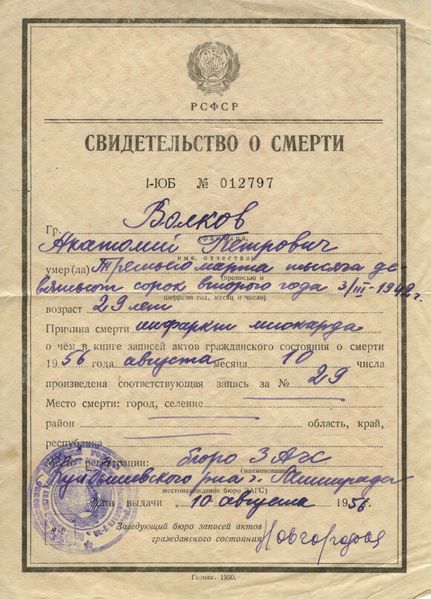 РСФСР
СВИДЕТЕЛЬСТВО О СМЕРТИ
I-ЮБ № 012797
Гр. Волков
фамилия
Анатолий Петрович
имя, отчество
умер(ла) Третьего марта тысяча де-
прописью и
вятьсот сорок второго года 3/III-1942 г.
цифрами год, месяц и число)
возраст 29 лет
Причина смерти инфаркт миокарда
о чём в книге записей актов гражданского состояния о смерти
1956 года августа месяца 10 числа
произведена соответствующая запись за № 29
Место смерти: город, селение
район область, край,
республика
Место регистрации: бюро ЗАГС
(наименование
Куйбышевского р-на г. Ленинграда
местонахождение бюро ЗАГС)
Дата выдачи „10 августа 1956.
Заведующий бюро записей актов
гражданского состояния Новгородова
Гознак. 1950.